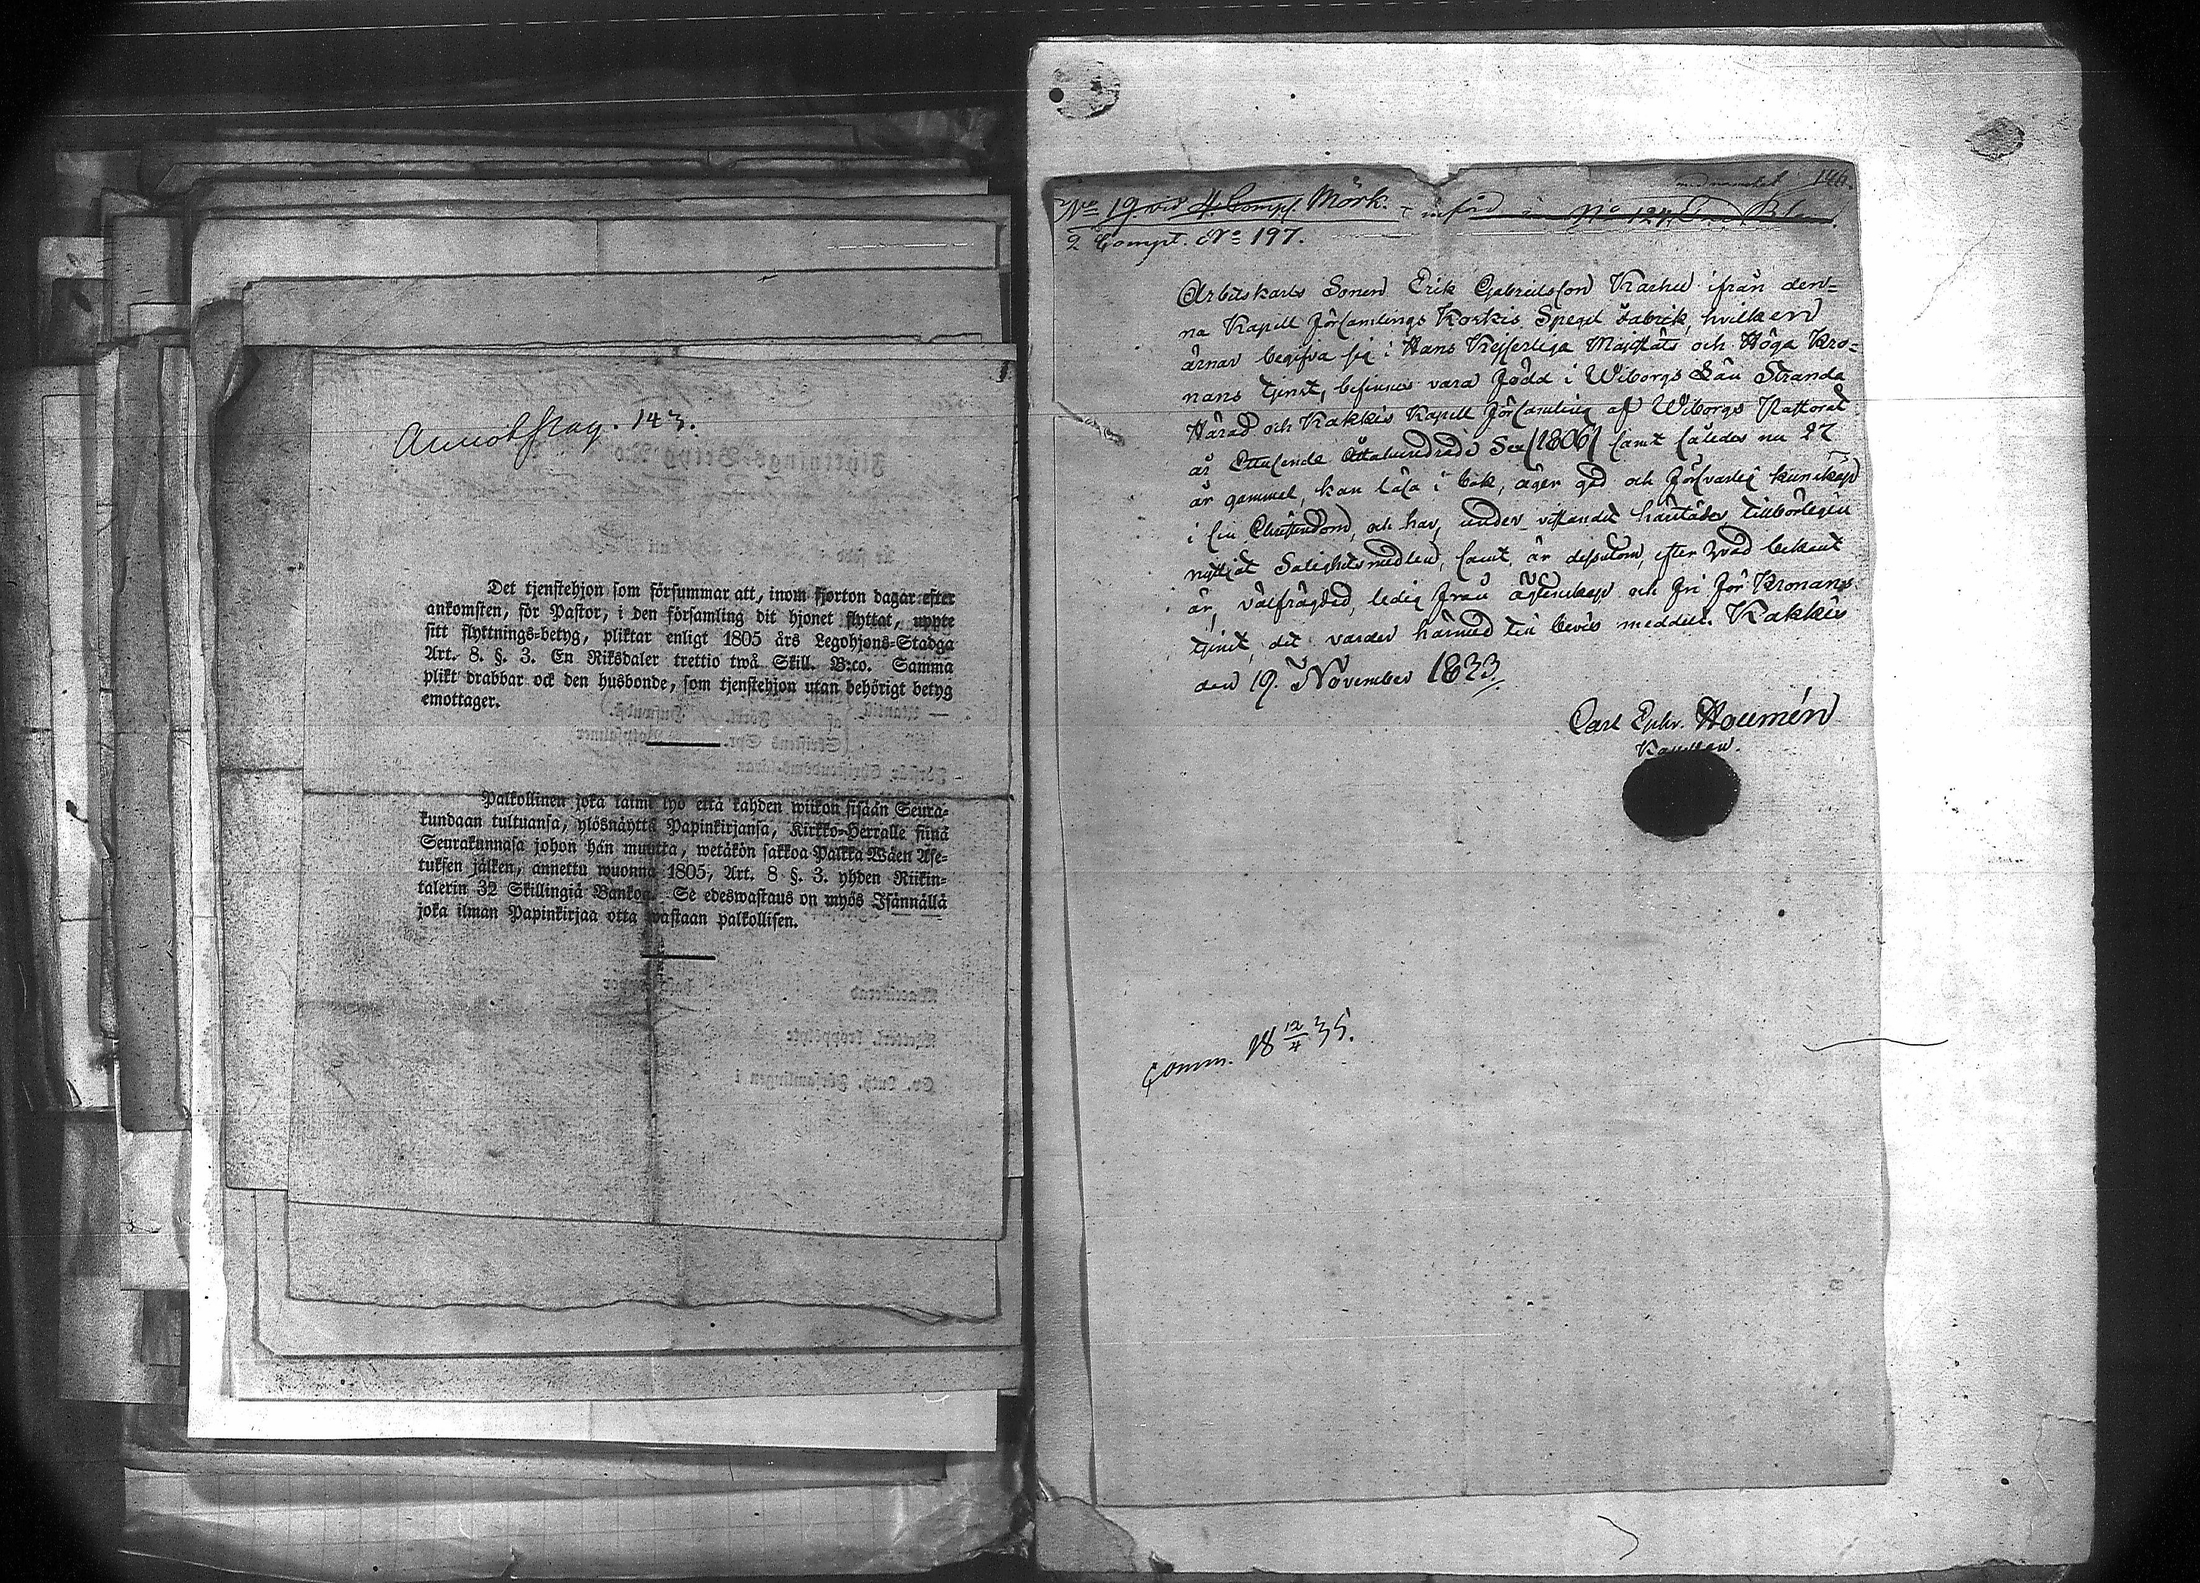 Annot. pag. 143.
Det tjenstehjon som försummar att, inom fjorton dagar efter
ankomsten, för Pastor, i den församling dit hjonet flyttat, uppte
sitt flyttnings-betyg, pliktar enligt 1805 års Legohjons-Stadga
Art. 8. §. 3. En Riksdaler trettio twå Skill. B:co. Samma
plikt drabbar ock den husbonde, som tjenstehjon utan behörigt betyg
emottager.
Palkollinen joka laimi lyö että kahden wiikon sisään Seura-
kundaan tultuansa, ylösnäyttä Papinkirjansa, Kirkko-Herralle siinä
Seurakunnasa johon hän muutta, wetäkön sakkoa Palkka Wäen Ase-
tuksen jälken, annettu wuonna 1805, Art. 8 §. 3. yhden Riikin-
talerin 32 Skillingiä Bankog. Se edeswastaus on myös Isännällä
joka ilman Papinkirjaa otta wastaan palkollisen.
146.
No 19 vid 4 Comp. Mörk. införd No 124
2 Compt. No 197.
Arbetskarls Sonen Erik Gabrielsson Karhu ifrån den-
na Kapell Församlings Kockis Spegel Fabrik, hvilken
ärnar begifva sig i Hans Kejserliga Majestäts och Höga Kro-
nans tjenst, befinnes vara född i Wiborgs Län Stranda
Härad och Kakkis Kapell Församling af Wiborgs Pastorat
år Ettusende Åttahundrade Sex (1806) samt således nu 27
år gammal, kan läsa i bok, äger god och försvarlig kunskap
i sin Christendom, och har, under vistandet härstädes tillbörligen
nyttjat Salighetsmedlen, samt är dessutom, efter hvad bekant
är, välfrägdad, ledig från ägtenskap och fri för Kronans
tjenst, det varder härmed till bevis meddelt. Kakkis
den 19. November 1833.
Carl Ephr. Houmén
Kapellan.
Comm. 18 12/4 35.